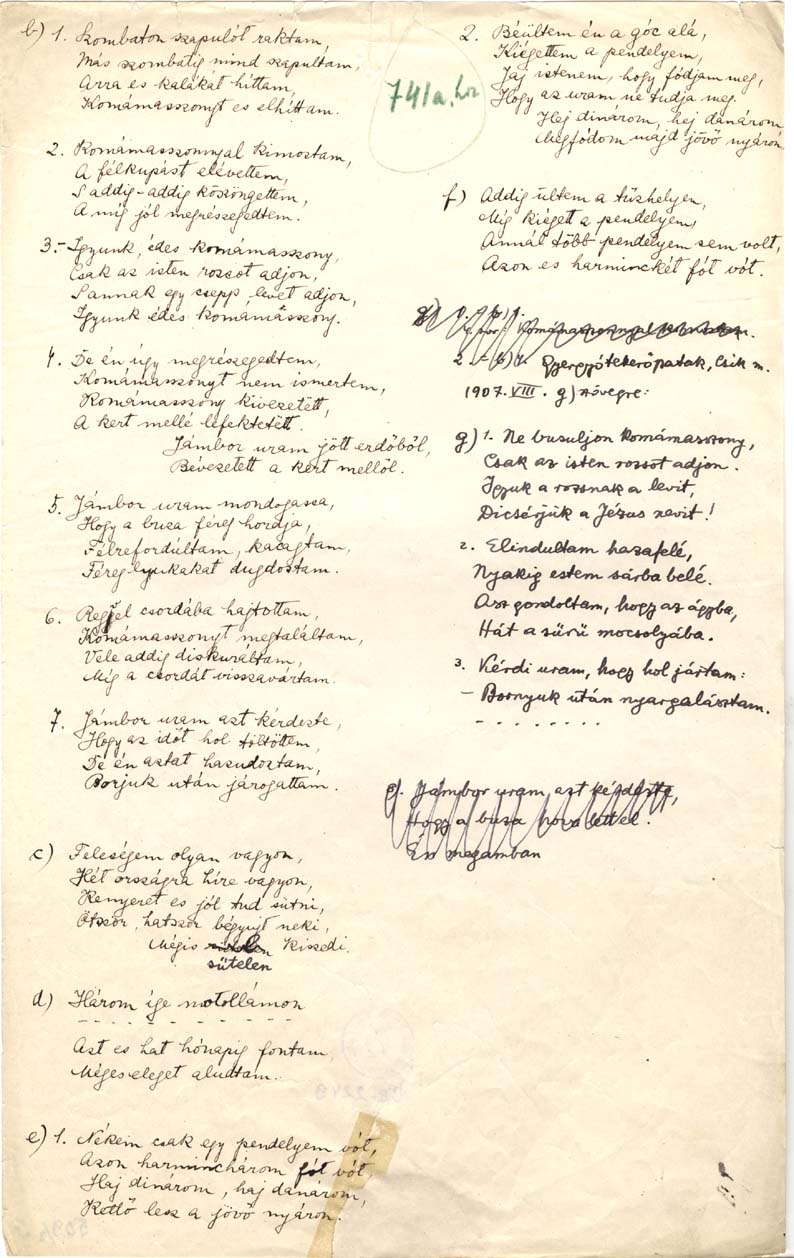 b) 1. Szombaton szapulót raktam,
Más szombatig mind szapultam,
Arra es kalákát hittam,
Komámasszonyt es elhittam.
2. Komámasszonnyal kimostam,
A félkupást elévettem,
S addig-addig köszöngettem,
A míg jól megrészegedtem.
3.- Igyunk, édes komámasszony,
Csak az isten rozsot adjon,
S annak egy csepp levet adjon,
Igyunk édes komámasszony.
4. De én úgy megrészegedtem,
Komámasszonyt nem ismertem,
Komámasszony kivezetett,
A kert mellé lefektetett.
Jámbor uram jött erdőből,
Bévezetett a kert mellől.
5. Jámbor uram mondogassa,
Hogy a buza féreg hordja,
Félrefordúltam, kacagtam,
Féreglyukakat dugdostam.
6. Reggel csordába hajtottam,
Komámasszonyt megtaláltam,
Vele addig diskuráltam,
Míg a csordát visszavártam.
7. Jámbor uram azt kérdezte,
Hogy az időt hol töltöttem,
De én aztat hazudoztam,
Borjuk után járogattam.
c) Feleségem olyan vagyon,
Két országra híre vagyon,
Kenyeret es jól tud sütni,
Ötször, hatszor bégyujt neki,
Mégis kiszedi.
sütelen
d) Három ige motollámon
- - - - - - - - - -
Azt es hat hónapig fontam,
Méges eleget aludtam.
e) 1. Nékem csak egy pendelyem vót,
Azon harminchárom fót vót,
Haj dinárom, haj danárom,
Kettő lesz a jövő nyáron.
741a. hoz
2. Béültem én a góc alá,
Kiégettem a pendelyem,
Jaj istenem, hogy fódjam meg,
Hogy az uram ne tudja meg.
Hej dinárom, hej danárom
Megfódom majd jövő nyáron
f) Addig ültem a tűzhelyen,
Míg kiégett a pendelyem,
Annál több pendelyem sem volt,
Azon es harminckét fót vót.
g)
2. - b) 7. Gyergyótekerőpatak, Csik m.
1907. VIII. g) szövegre:
g) 1. Ne busuljon komámasszony,
Csak az isten rozsot adjon.
Igyuk a rozsnak a levit,
Dicsérjük a Jézus nevit!
2. Elindultam hazafelé,
Nyakig estem sárba belé.
Azt gondoltam, hogy az ágyba,
Hát a sűrű mocsolyába.
3. Kérdi uram, hogy hol jártam:
- Bornyuk után nyargalásztam.
- - - - - - - -
e). Jámbor uram azt kérdezte,
Hogy a buza hova lettel.
Én magamban